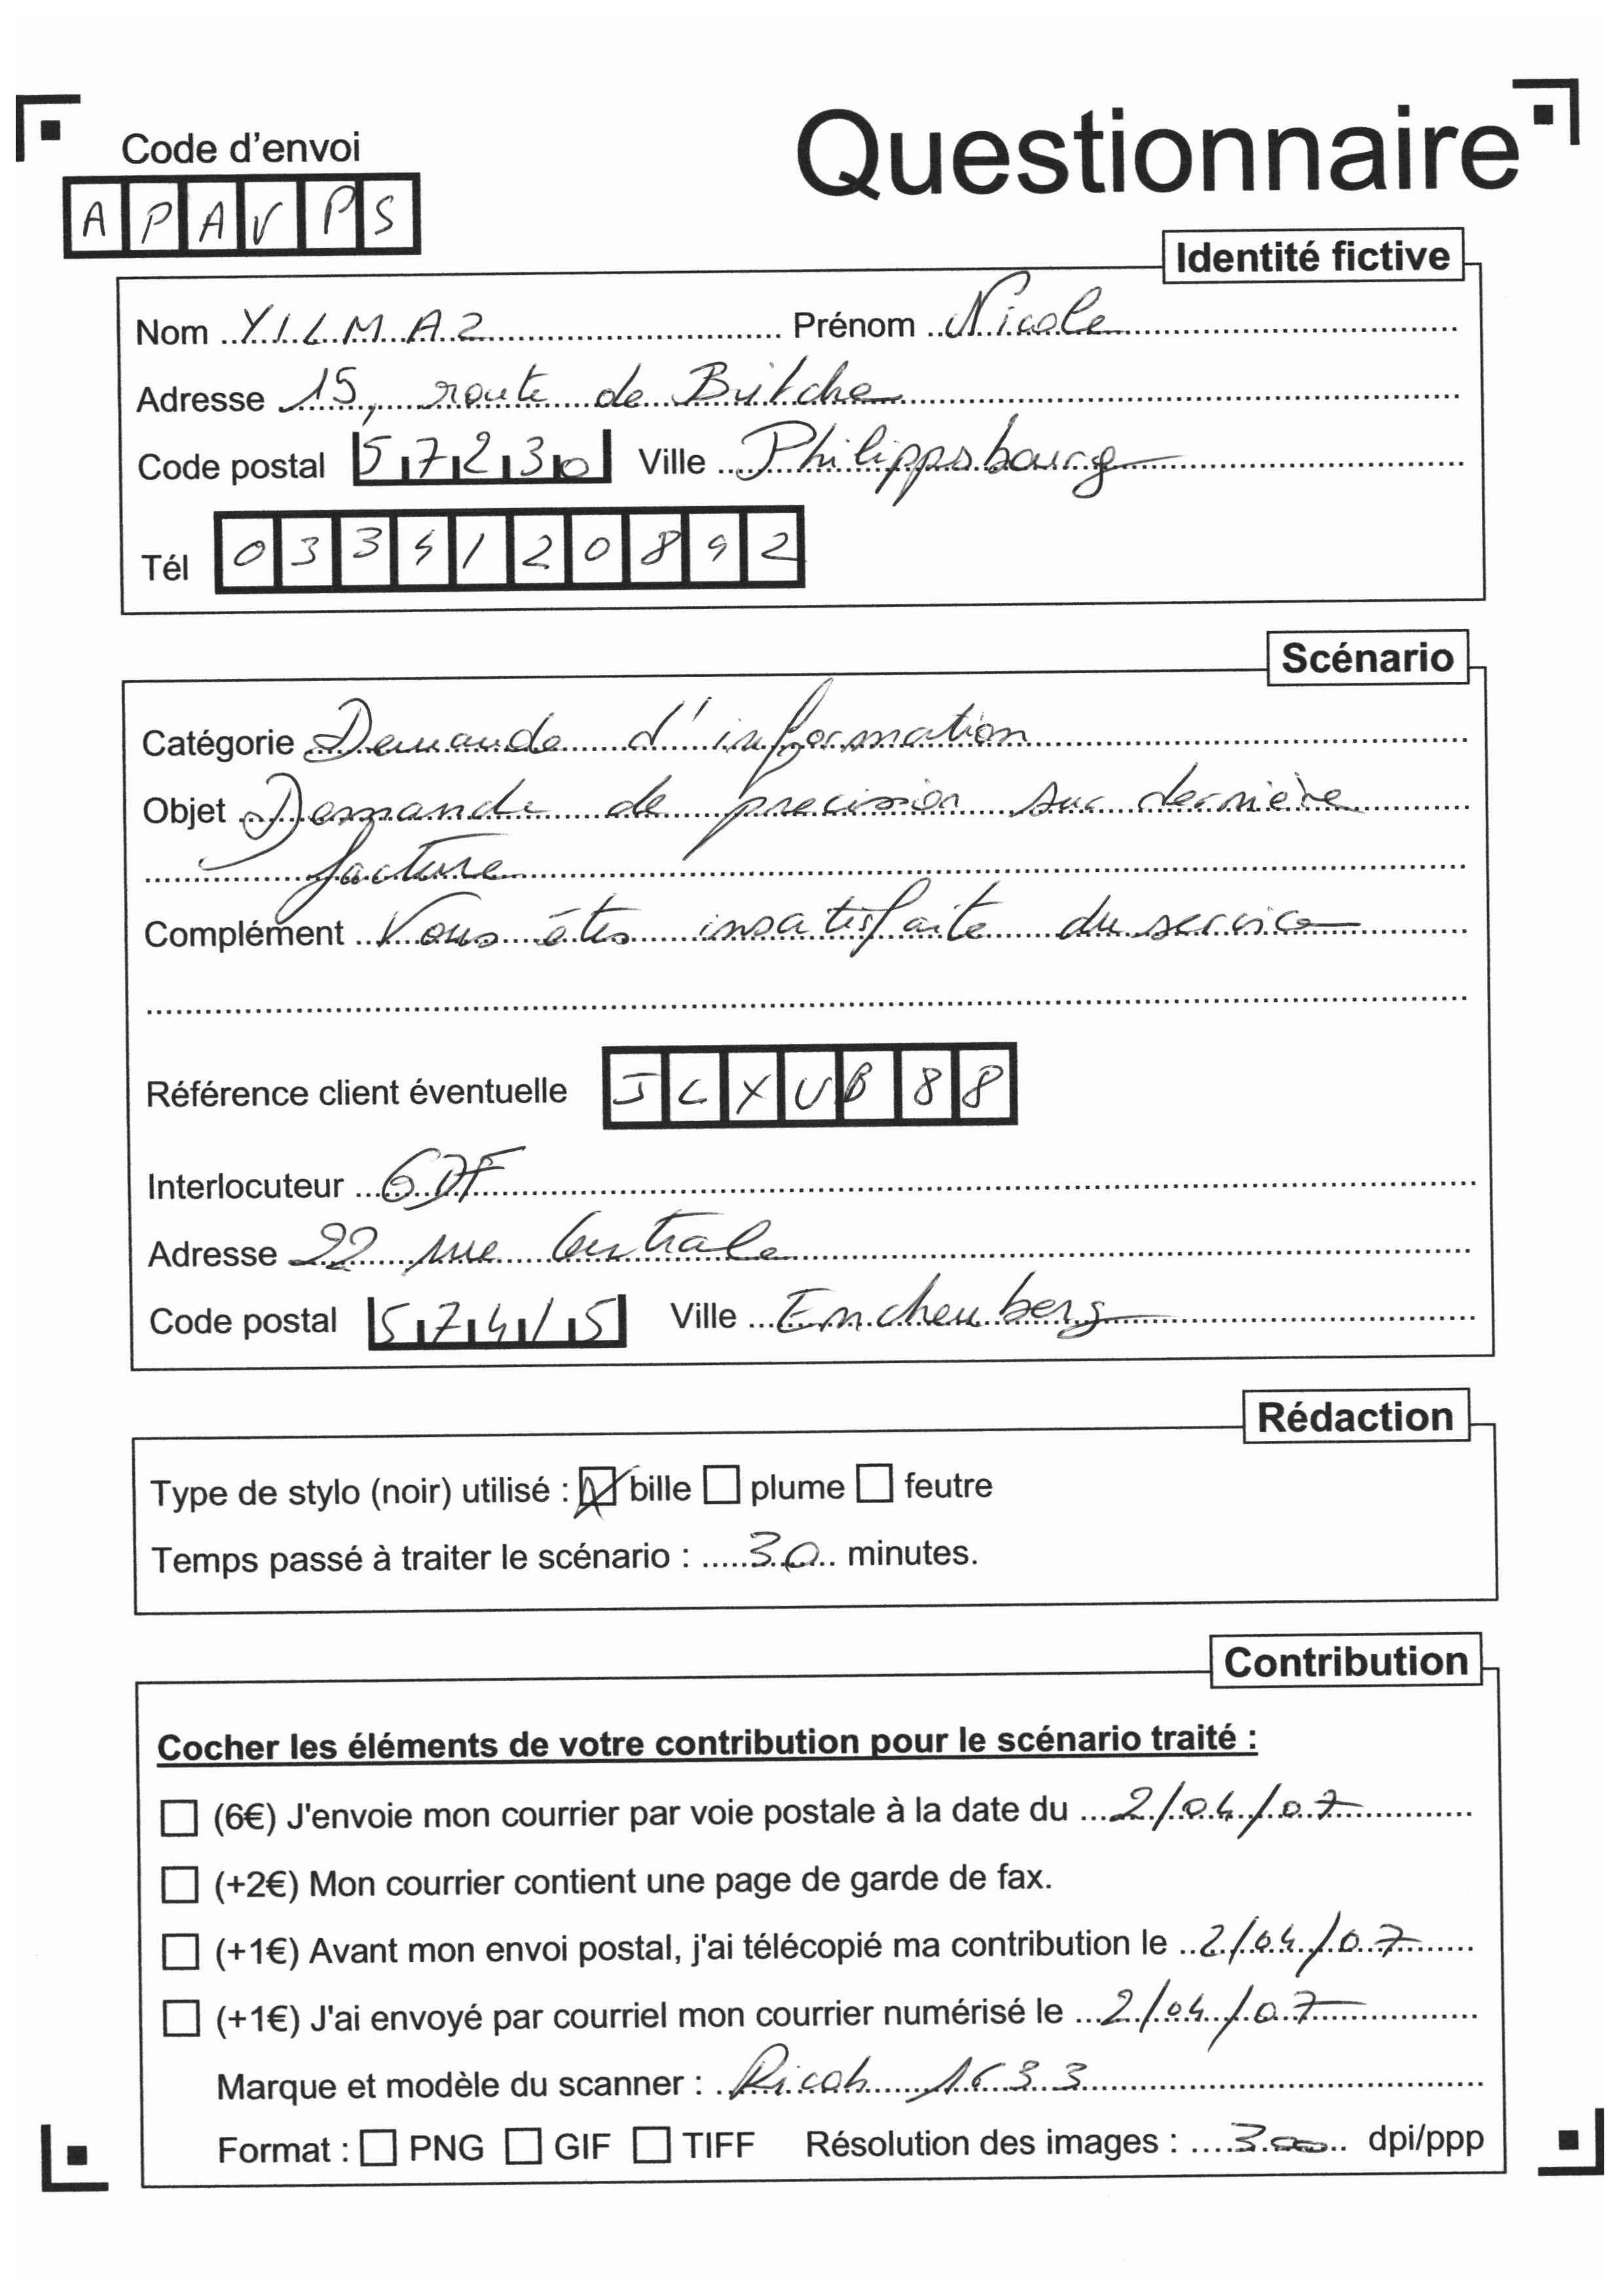 Questionnaire
Code d'envoi
APAVPS
Identité fictive
Nom YILMAZ Prénom Nicole
Adresse 15, route de Bitche
Code postal 57230 Ville Philippsbourg
Tél 0334120892
Scénario
Catégorie Demande d'information
Objet Demande de precision sur dernière
facture
Complément Vous êtes insatisfaite du service
Référence client éventuelle JLXUB88
Interlocuteur GDF
Adresse 22 rue Centrale
Code postal 57415 Ville Enchenberg
Rédaction
Type de stylo (noir) utilisé : bille plume feutre
Temps passé à traiter le scénario : 30 minutes.
Contribution
Cocher les éléments de votre contribution pour le scénario traité :
(6€) J'envoie mon courrier par voie postale à la date du 2/04/07
(+2€) Mon courrier contient une page de garde de fax.
(+1€) Avant mon envoi postal, j'ai télécopié ma contribution le 2/04/07
(+1€) J'ai envoyé par courriel mon courrier numérisé le 2/04/07
Marque et modèle du scanner : Ricoh 1633
Format : PNG GIF TIFF Résolution des images : 300 dpi/ppp